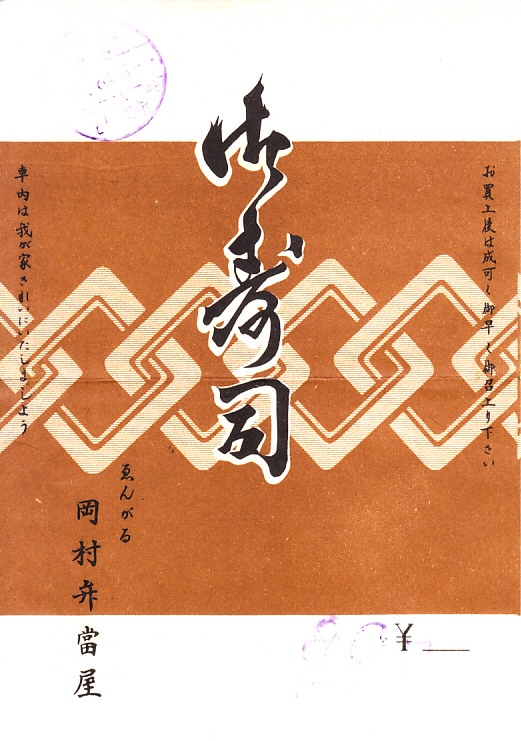 お買上後は成可く御早く御召上り下さい
御寿司
車内は我が家きれいにいたしましよう
ゑんがる
岡村弁當屋
¥